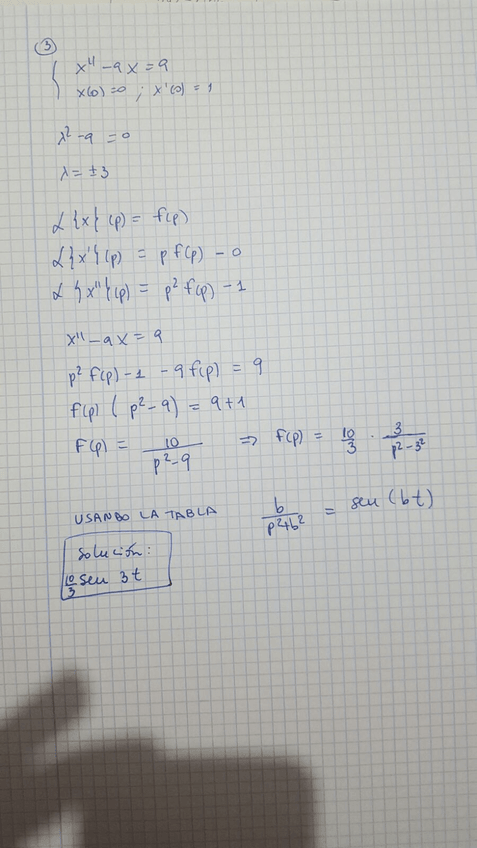 3
x'' - 9x = 9
x(0) = 0 ; x'(0) = 1
λ² - 9 = 0
λ = ±3
L{x}(p) = f(p)
L{x'}(p) = p f(p) - 0
L{x''}(p) = p² f(p) - 1
x'' - 9x = 9
p² f(p) - 1 - 9 f(p) = 9
f(p) ( p² - 9) = 9 + 1
f(p) = 10 / p² - 9 ⇒ f(p) = 10/3 · 3 / p² - 3²
USANDO LA TABLA b / p² + b² = sen (bt)
Solución:
10/3 sen 3t